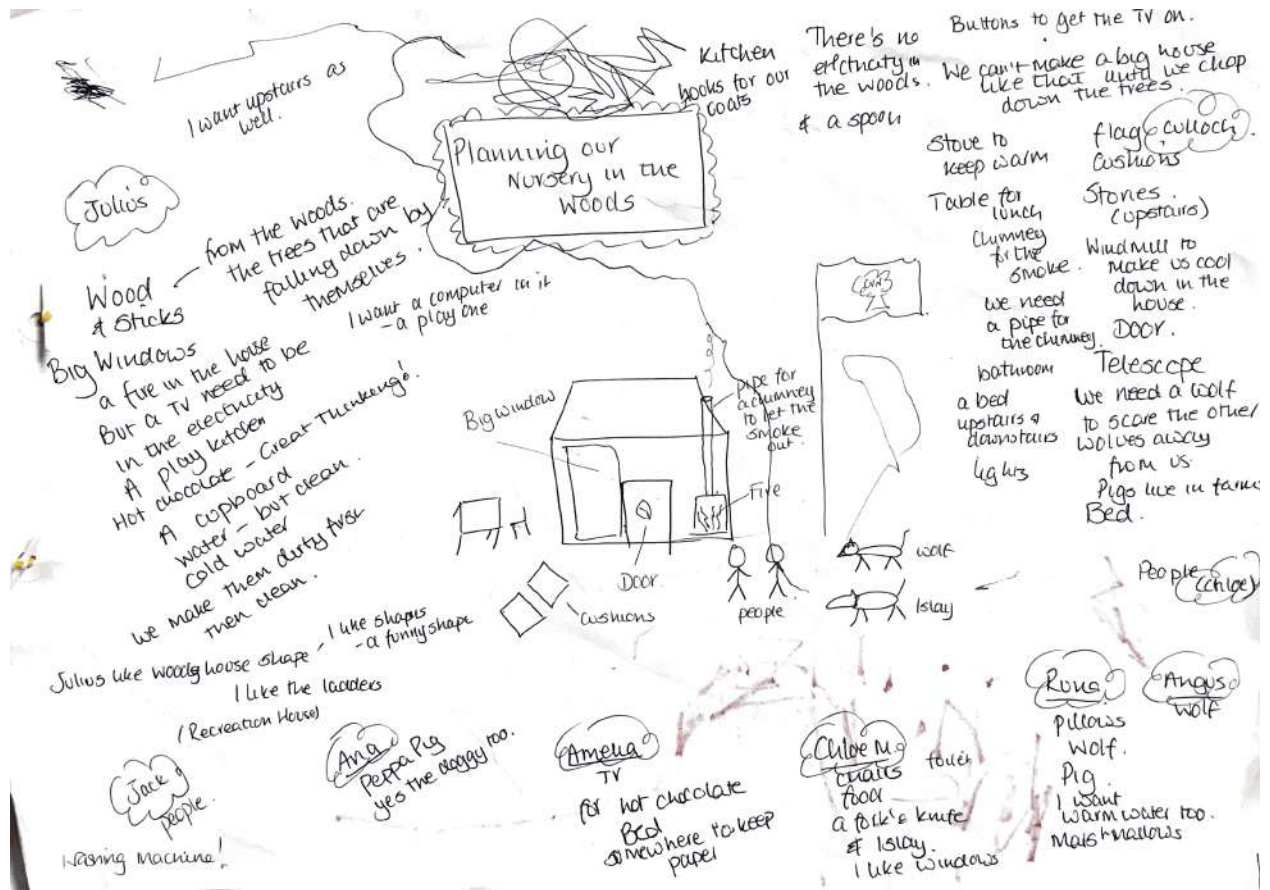 I want upstairs as
well.
Kitchen
hooks for our
coats
There's no
electricity in
the woods.
& a spoon
Buttons to get the TV on.
We can't make a big house
like that until we chop
down the trees.
Planning our
Nursery in the
Woods
Julius
Wood
& Sticks
from the woods.
the trees that are
falling down by
themselves.
Big Windows
a fire in the house
But a TV need to be
in the electricity
A play kitchen
Hot chocolate - Great Thinking!
A cupboard
water - but clean.
cold water
we make them dirty first
then clean.
I want a computer in it
- a play one
Julius like woods house shape
I like shapes
- a funny shape
I like the ladders
(Recreation House)
Big window
pipe for
a chimney
to let the
smoke
out.
Fire
Door.
Cushions
people
wolf
Islay
Stove to
keep warm
Table for
lunch
Chimney
for the
smoke.
we need
a pipe for
the chimney.
bathroom
a bed
upstairs &
downstairs
lights
flag Culloch.
Cushions
Stories.
(upstairs)
Windmill to
make us cool
down in the
house.
DOOR.
Telescope
We need a wolf
to scare the other
wolves away
from us.
Pigs live in farms
Bed.
People (Chloe)
Jack
people.
Washing Machine!
Ana
Peppa Pig
yes the doggy too.
Amelia
TV
for hot chocolate
Bed
somewhere to keep
paper
Chloe M.
toilet
chairs
food
a fork & knife
& Islay.
I like windows
Runa
pillows
Wolf.
Pig.
I want
warm water too.
Marshmallows
Angus
Wolf